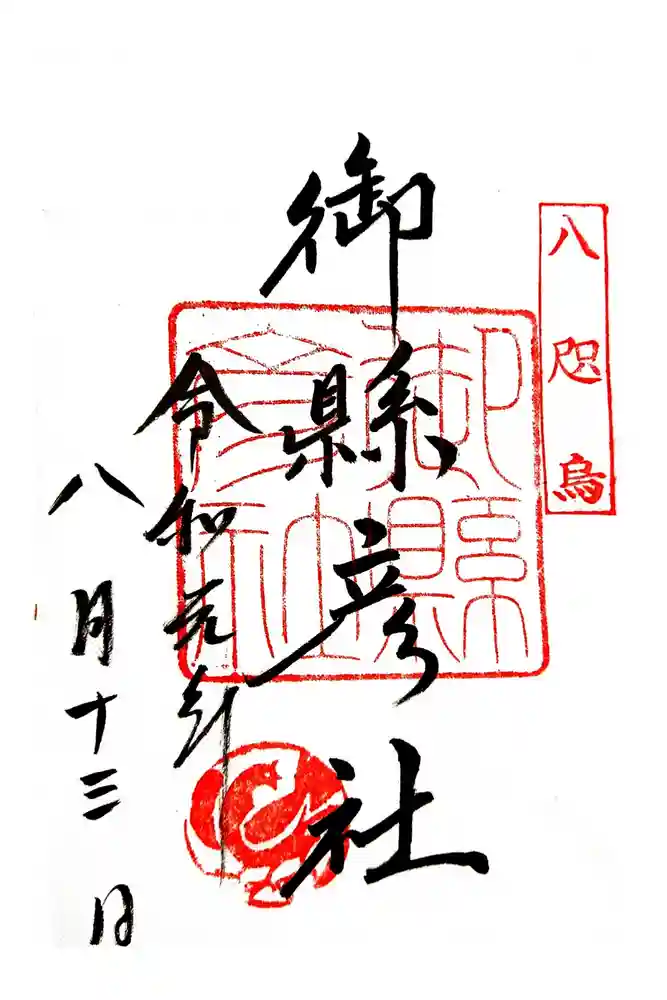 八咫烏
御縣彦社
御縣彦社
令和元年
八月十三日